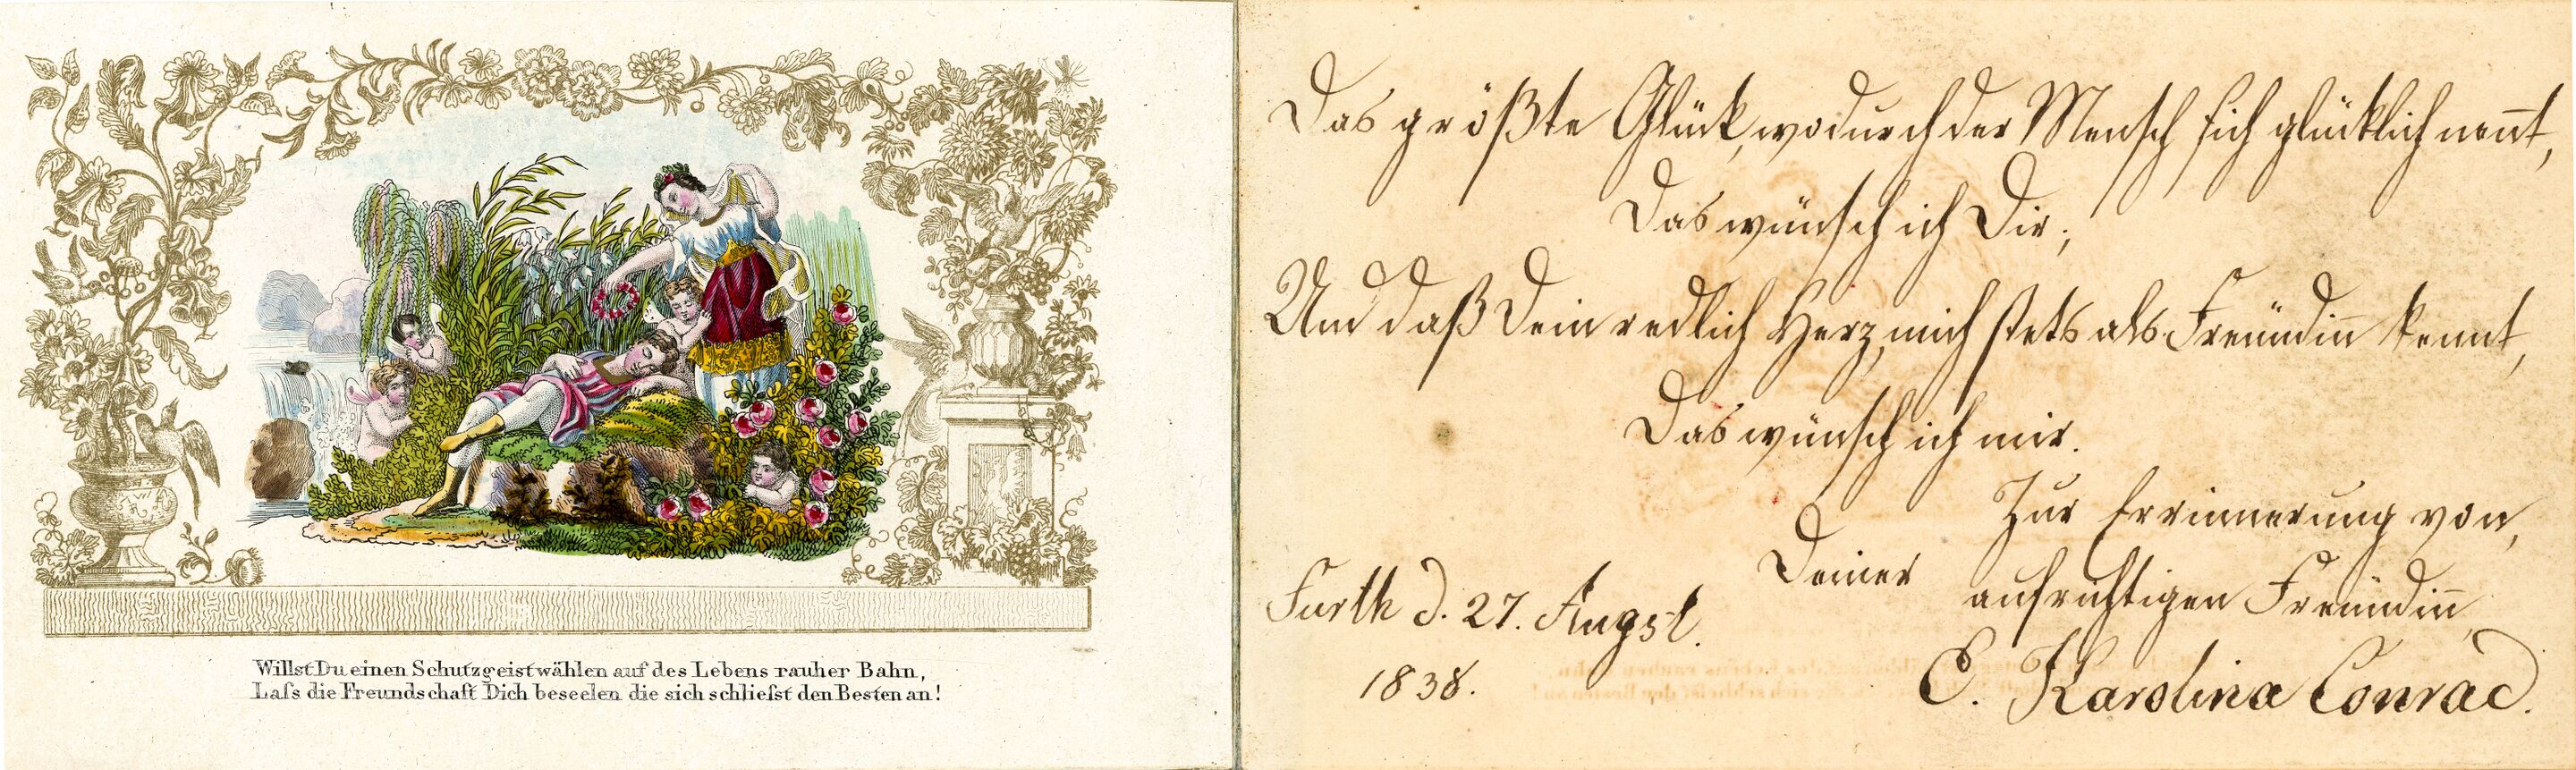 Willst Du einen Schutzgeist wählen auf des Lebens rauher Bahn,
Laſs die Freundschaft Dich beseelen die sich schlieſst den Besten an!
Das größte Glück, wodurch der Mensch sich glücklich nen̄t,
Das wünsch ich Dir;
Und daß Dein redlich Herz, mich stets als Freündin̄ kennt,
Das wünsch ich mir.
Zur Errinnerung von,
Deiner aufrichtigen Freündin̄,
Fürth d. 27. Augst.
1838.
C. Karolina Conrad.